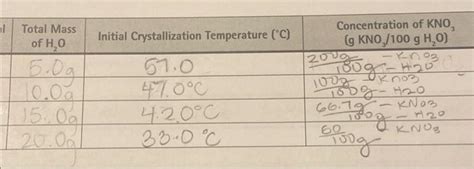 Total Mass of H₂O Initial Crystallization Temperature (°C) Concentration of KNO₃ (g KNO₃/100 g H₂O)
5.0g 57.0 200g - KnO3 / 100g - H2O
10.0g 47.0°C 100g - KnO3 / 100g - H2O
15.0g 42.0°C 66.7g - KNO3 / 100g - H2O
20.0g 33.0°C 50 - KNO3 / 100g